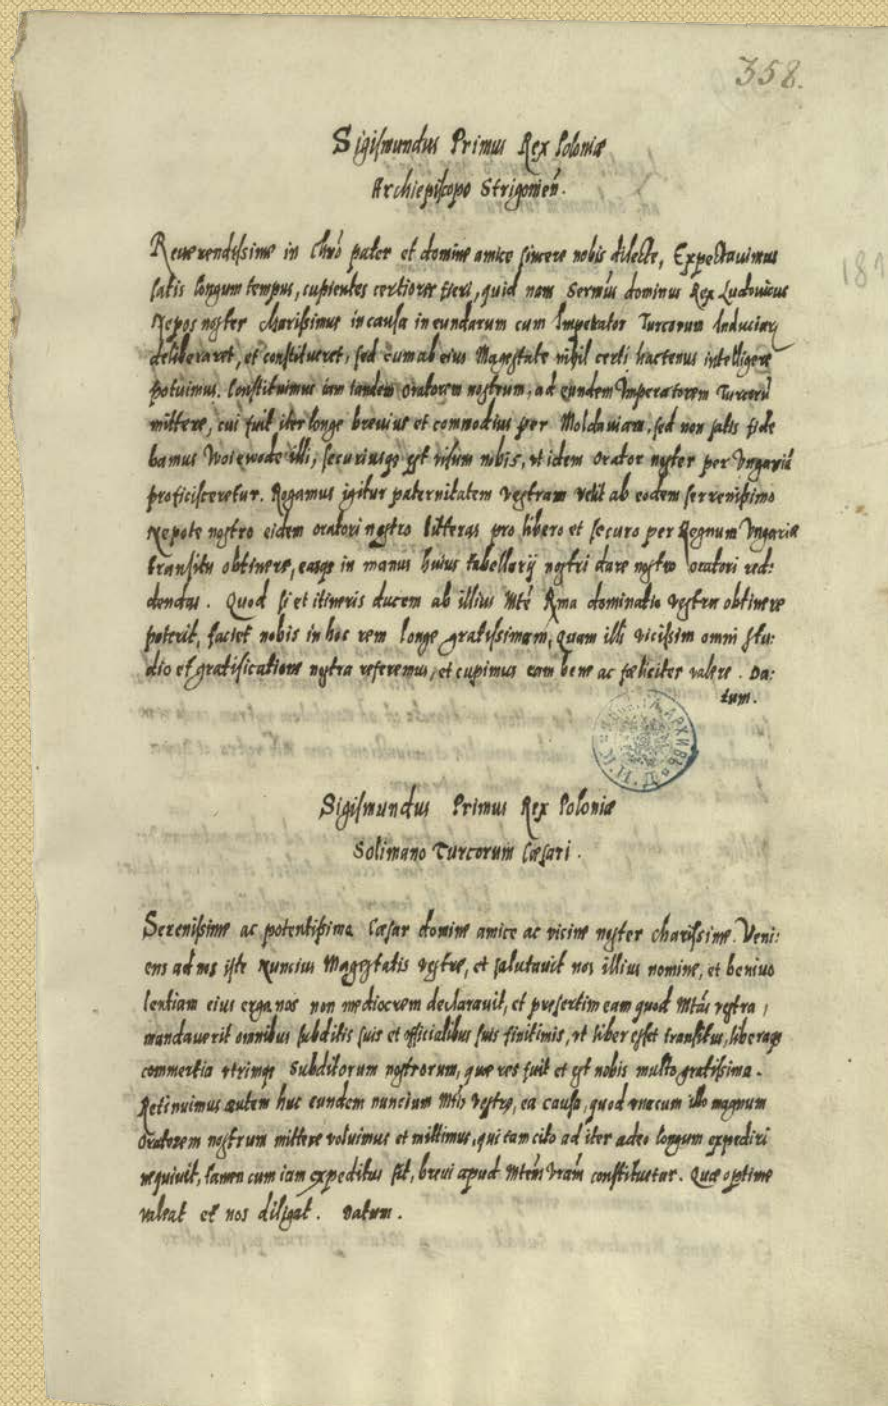 358.
Sigismundus Primus Rex Poloniæ
Archiepiscopo Strigonień.
Reuerendissime in Chro pater et domine amice sincere nobis dilecte, Expectauimus
satis longum tempus, cupientes certiores fieri, quid nam Sermus dominus Rex Ludouicus
Nepos noster charissimus in causa ineundarum cum Imperator Turcorum Induciarꝫ
deliberaret, et constitueret, sed cum ab eius Magestate nihil certi hactenus intelligere
potuimus. Constituimus iam tandem oratorem nostrum, ad eundem Imperatorem Turcorū
mittere, cui fuit iter longe breuius et commodius per Moldauiam, sed non satis fide
bamus Woiewode illi, securiusqꝫ est visum nobis, vt idem orator noster per Vngariā
proficisceretur. Rogamus igitur paternitatem vestram velit ab eodem serrenissimo
Nepote nostro eidem oratori nostro litteras pro libero et securo per Regnum Vngariæ
transitu obtinere, easqꝫ in manus huius tabellarij nostri dare nostro oratori red:
dendas. Quod si et itineris ducem ab illius Mte Rma dominatio vestra obtinere
poterit, faciet nobis in hoc rem longe gratissimam, quam illi vicissim omni stu:
dio et gratificatione nostra referemus, et cupimus eam bene ac fæliciter valere. Da:
tum.
АРХИВЪ
Sigismundus Primus Rex Poloniæ
Solimano Turcorum Cæsari.
Serenissime ac potentissime Cæsar domine amice ac vicine noster charissime. Veni:
ens ad nos iste Nuncius Magestatis vestre, et salutauit nos illius nomine, et beniuo
lentiam eius erga nos non mediocrem declarauit, et presertim eam quod Mtas vestra,
mandauerit omnibus subditis suis et officialibus suis finitimis, vt liber esset transitus, liberaqꝫ
commertia vtrinqꝫ Subditorum nostrorum, quæ res fuit et est nobis multo gratissima.
Retinuimus autem huc eundem nuncium Mtis vestre, ea causa, quod vnacum illo magnum
oratorem nostrum mittere voluimus et mittimus, qui tam cito ad iter adeo longum expediri
nequiuit, tamen cum iam expeditus sit, breui apud Mtem Vram constituetur. Quæ optime
valeat et nos diligat. Datum.